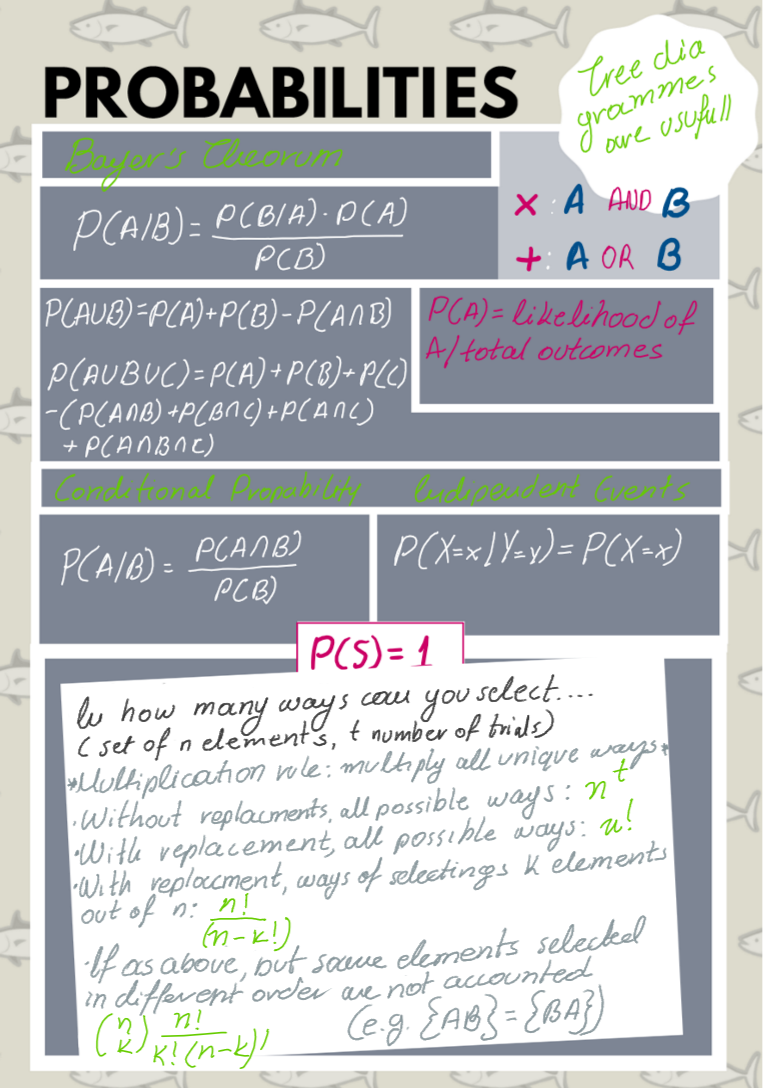 PROBABILITIES
Tree dia
grammes
are usufull
Bayer's Theorum
P(A/B) = P(B/A) · P(A) / P(B)
x : A AND B
+ : A OR B
P(AUB)=P(A)+P(B)-P(A∩B)
P(AUBUC)=P(A)+P(B)+P(C)
-(P(A∩B)+P(B∩C)+P(A∩C)
+P(A∩B∩C)
P(A)= likelihood of
A/total outcomes
Conditional Propability
Independent Events
P(A/B) = P(A∩B) / P(B)
P(X=x|Y=y) = P(X=x)
P(S)= 1
In how many ways can you select....
(set of n elements, t number of trials)
*Multiplication rule: multiply all unique ways*
·Without replacments, all possible ways: n^t
·With replacement, all possible ways: n!
·With replacment, ways of selectings k elements
out of n: n! / (n-k!)
·If as above, but same elements selected
in different order are not accounted
(n k) n! / k!(n-k)! (e.g. {AB} = {BA})